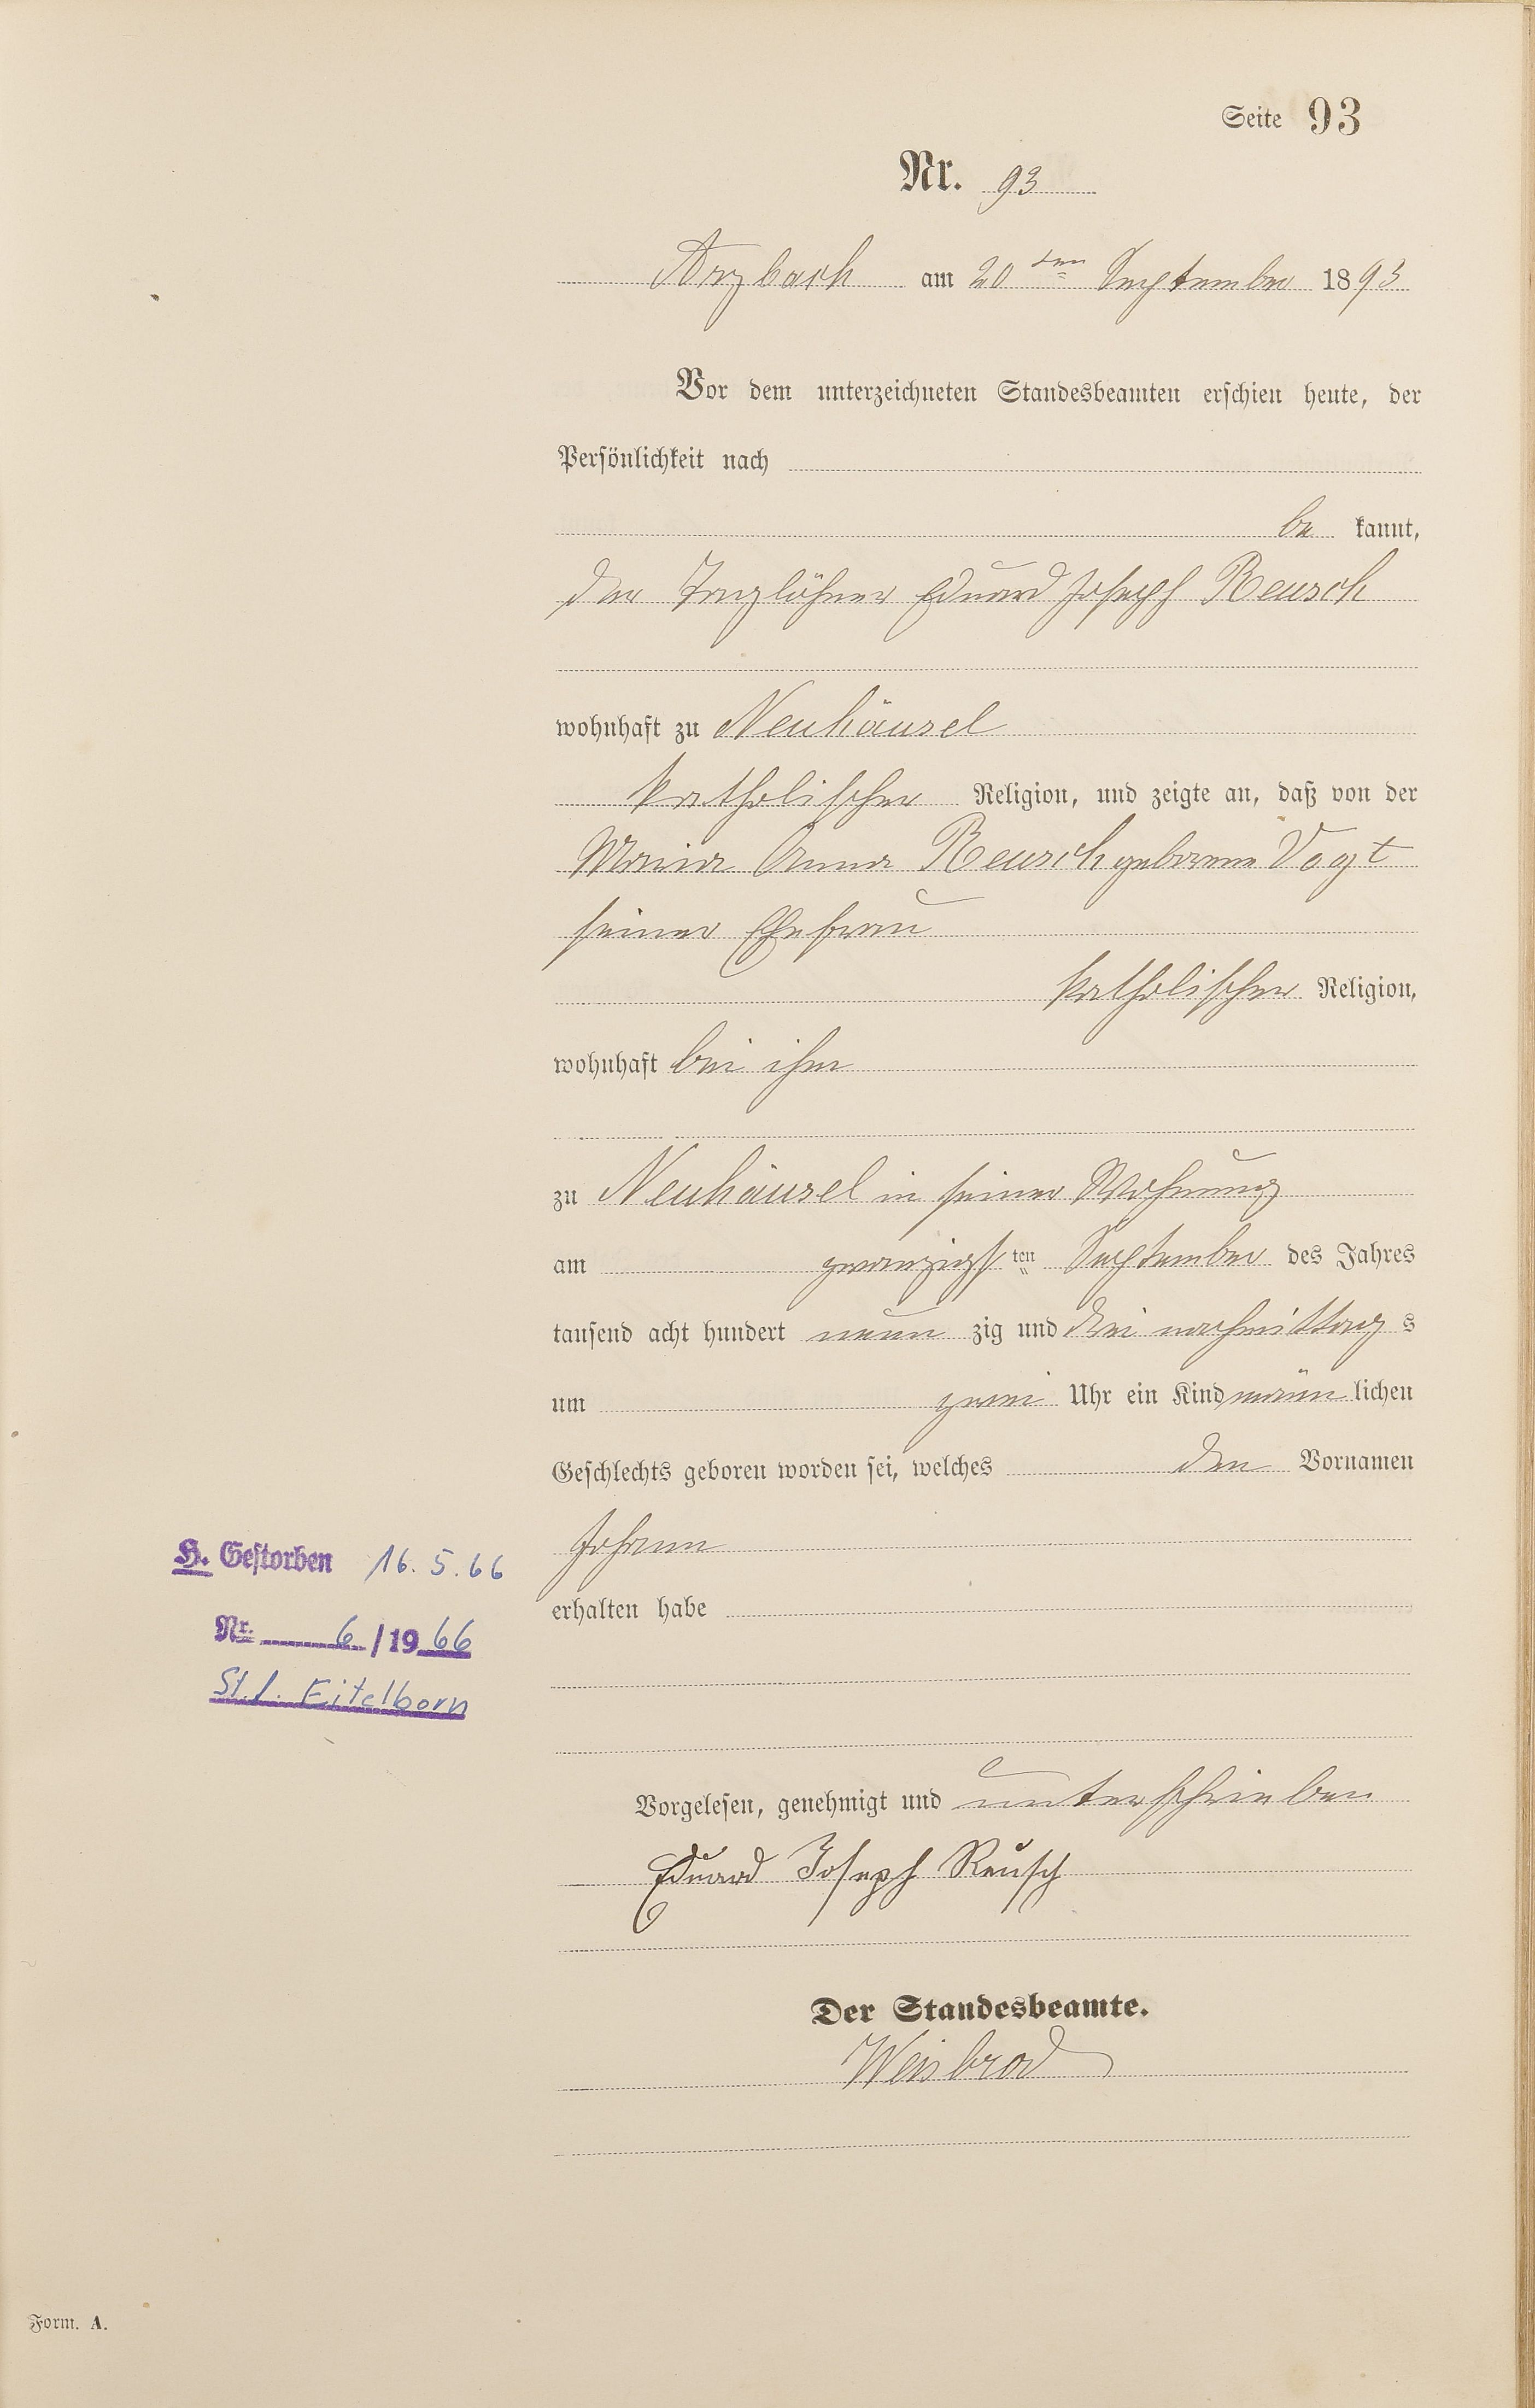 Seite 93
Nr. 93
Arzbach am 20ten September 1893
Vor dem unterzeichneten Standesbeamten erschien heute, der
Persönlichkeit nach
be kannt,
der Taglöhner Eduard Joseph Reusch
wohnhaft zu Neuhäusel
katholischer Religion, und zeigte an, daß von der
Maria Anna Reusch geborene Vogt
seiner Ehefrau
katholischer Religion,
wohnhaft bei ihm
zu Neuhäusel in seiner Wohnung
am zwanzigsten September des Jahres
tausend acht hundert neun zig und drei nachmittags
um zwei Uhr ein Kind männlichen
Geschlechts geboren worden sei, welches den Vornamen
Johann
H. Gestorben 16.5.66
erhalten habe
Nr. 6/1966
St.A. Eitelborn
Vorgelesen, genehmigt und unterschrieben
Eduard Joseph Reusch
Der Standesbeamte.
Weisbrod
Form. A.